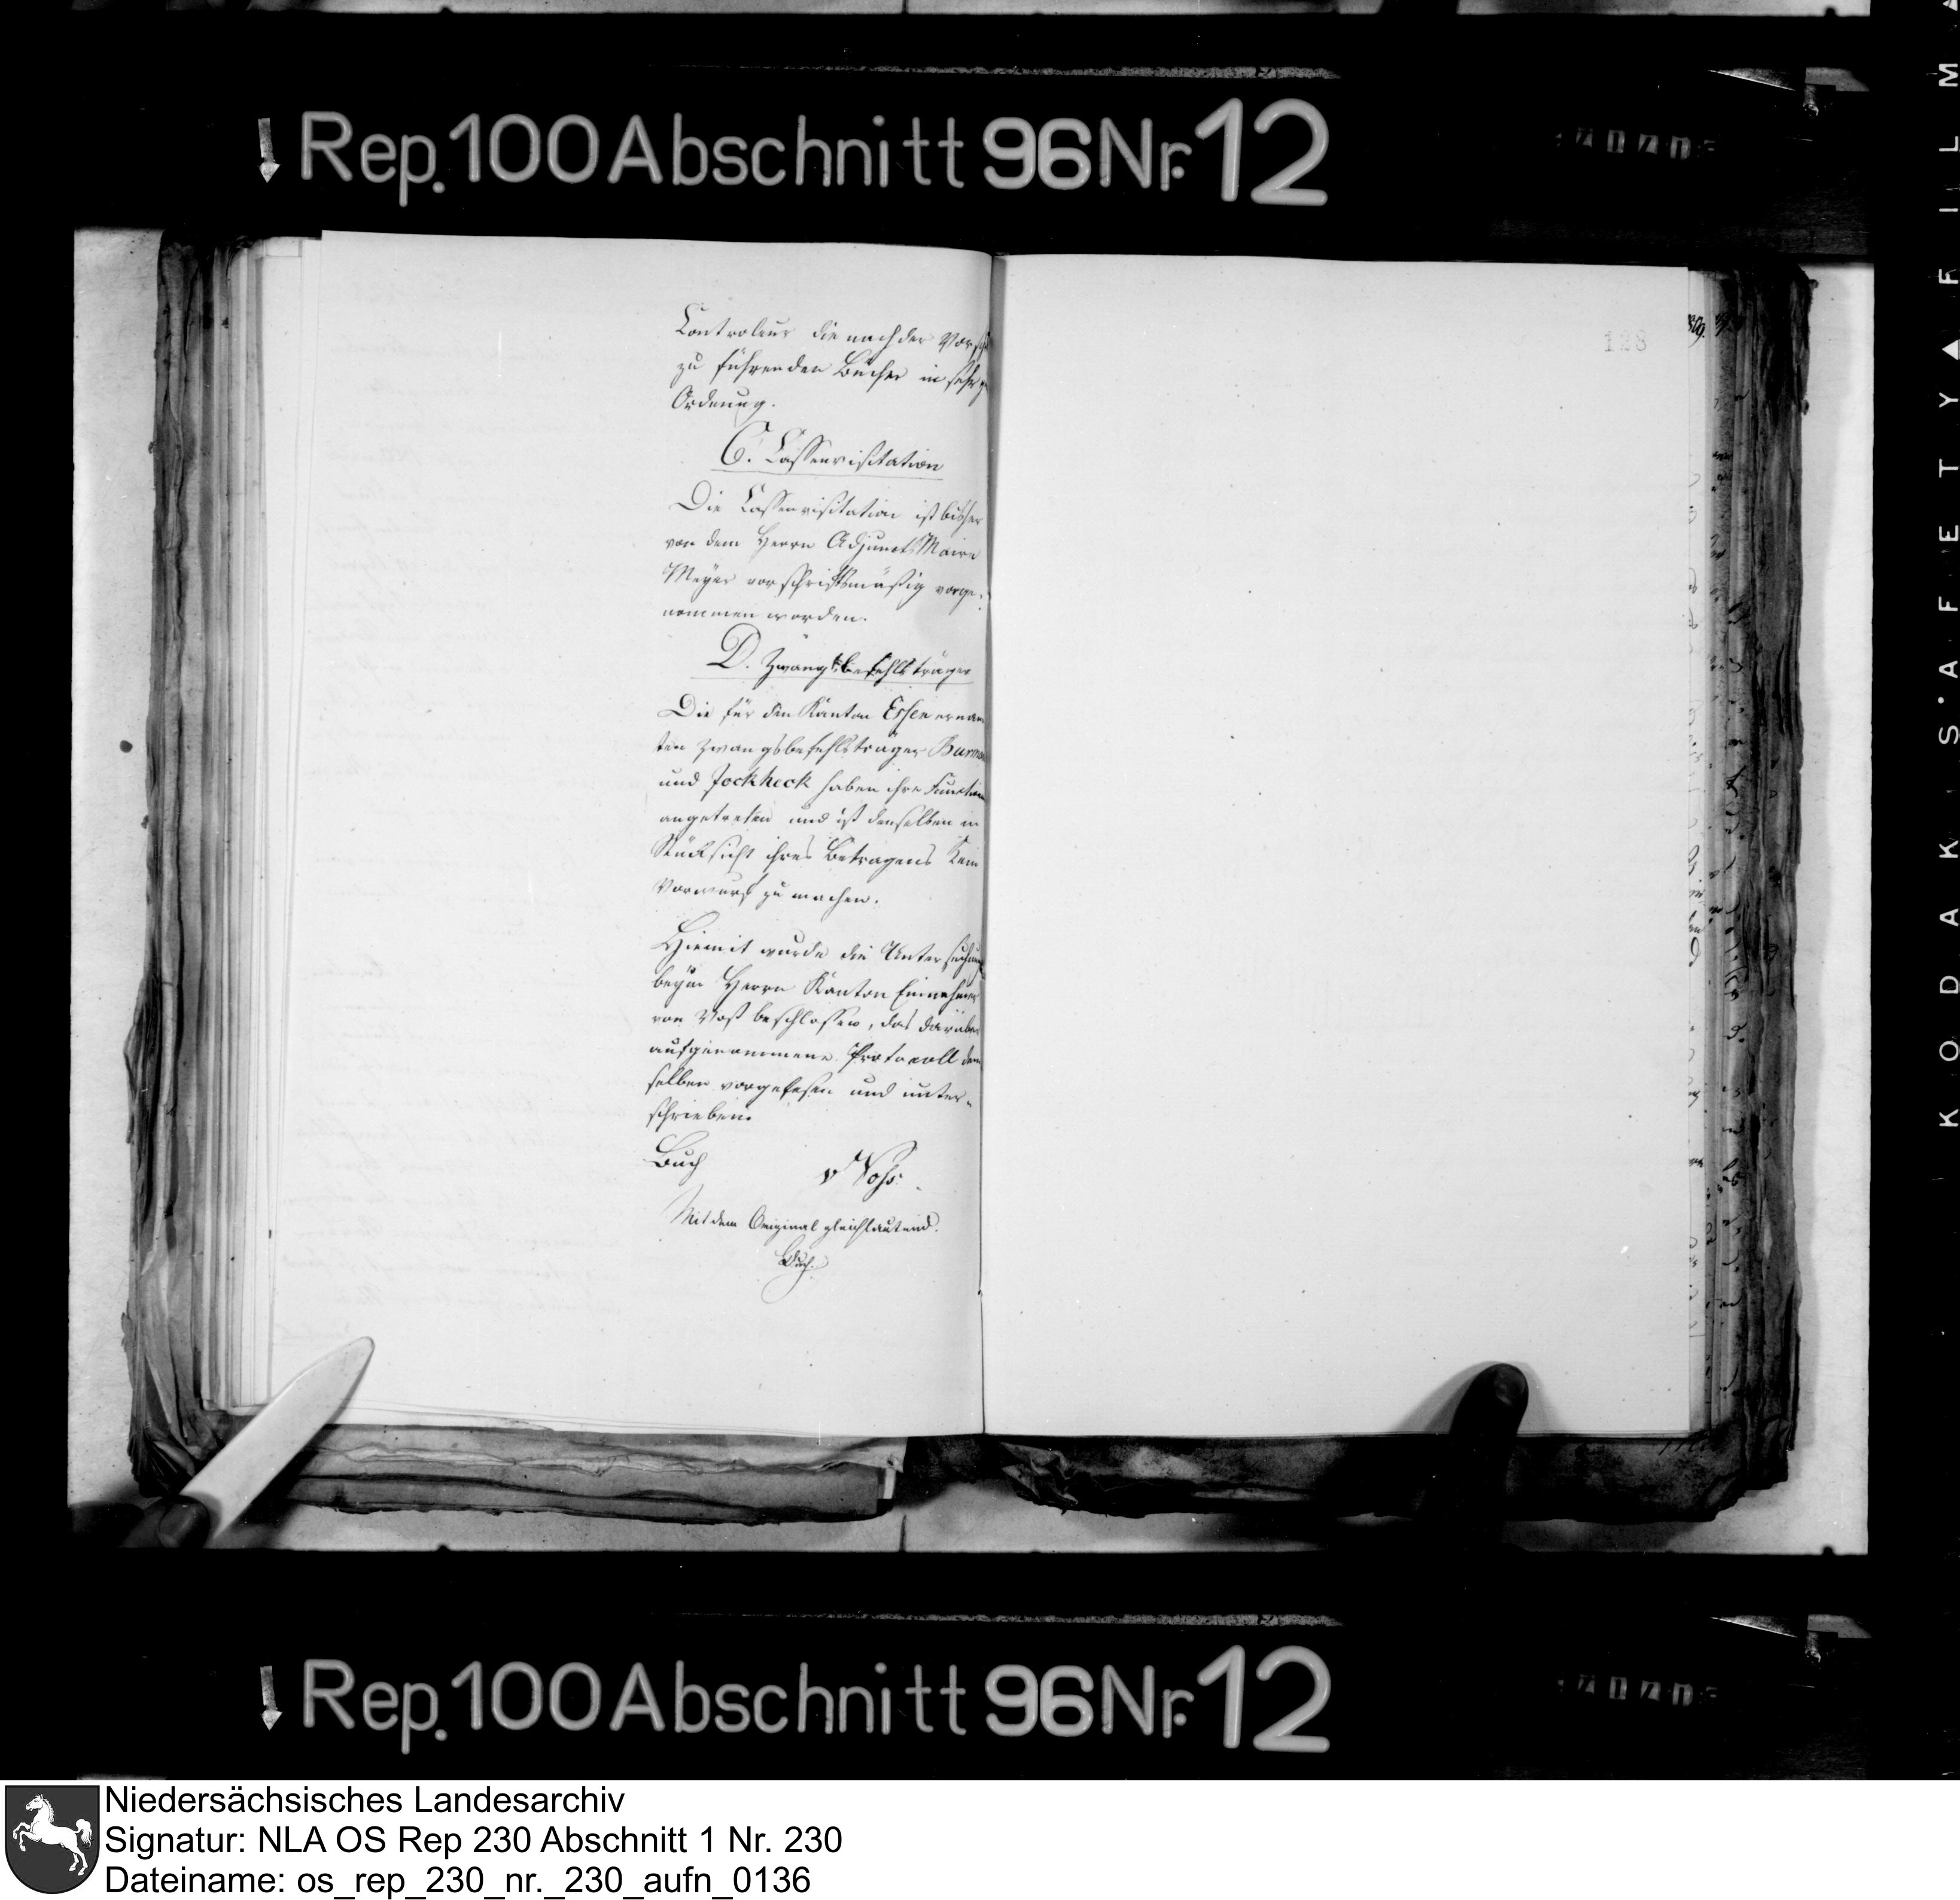 Rep. 100 Abschnitt 96 Nr. 12
128
Controleur die nach der
zu führenden Bücher in sehr
Ordnung.
C. Cassenvisitation
Die Cassenvisitation ist bisher
von dem Herrn Adjunct Maire
Meyer vorschriftsmäßig vorge-
nommen worden.
D. Zwangsbefehlsträger
Die für den Kanton Essen ernan
ten Zwangsbefehlsträger
und Jockheck haben ihre Function
angetreten und ist denselben in
Rücksicht ihres Betragens kein
Vorwurf zu machen.
Hiemit wurde die Untersuchung
beym Herrn Kanton Einnehmer
von Voß beschlossen, das darüber
aufgenommene Protocoll dem
selben vorgelesen und unter-
schrieben.
Buch v Voss.
Mit dem Original gleichlautend.
Buch.
KODAK SAFETY FILM
Rep. 100 Abschnitt 96 Nr. 12
Niedersächsisches Landesarchiv
Signatur: NLA OS Rep 230 Abschnitt 1 Nr. 230
Dateiname: os_rep_230_nr._230_aufn_0136